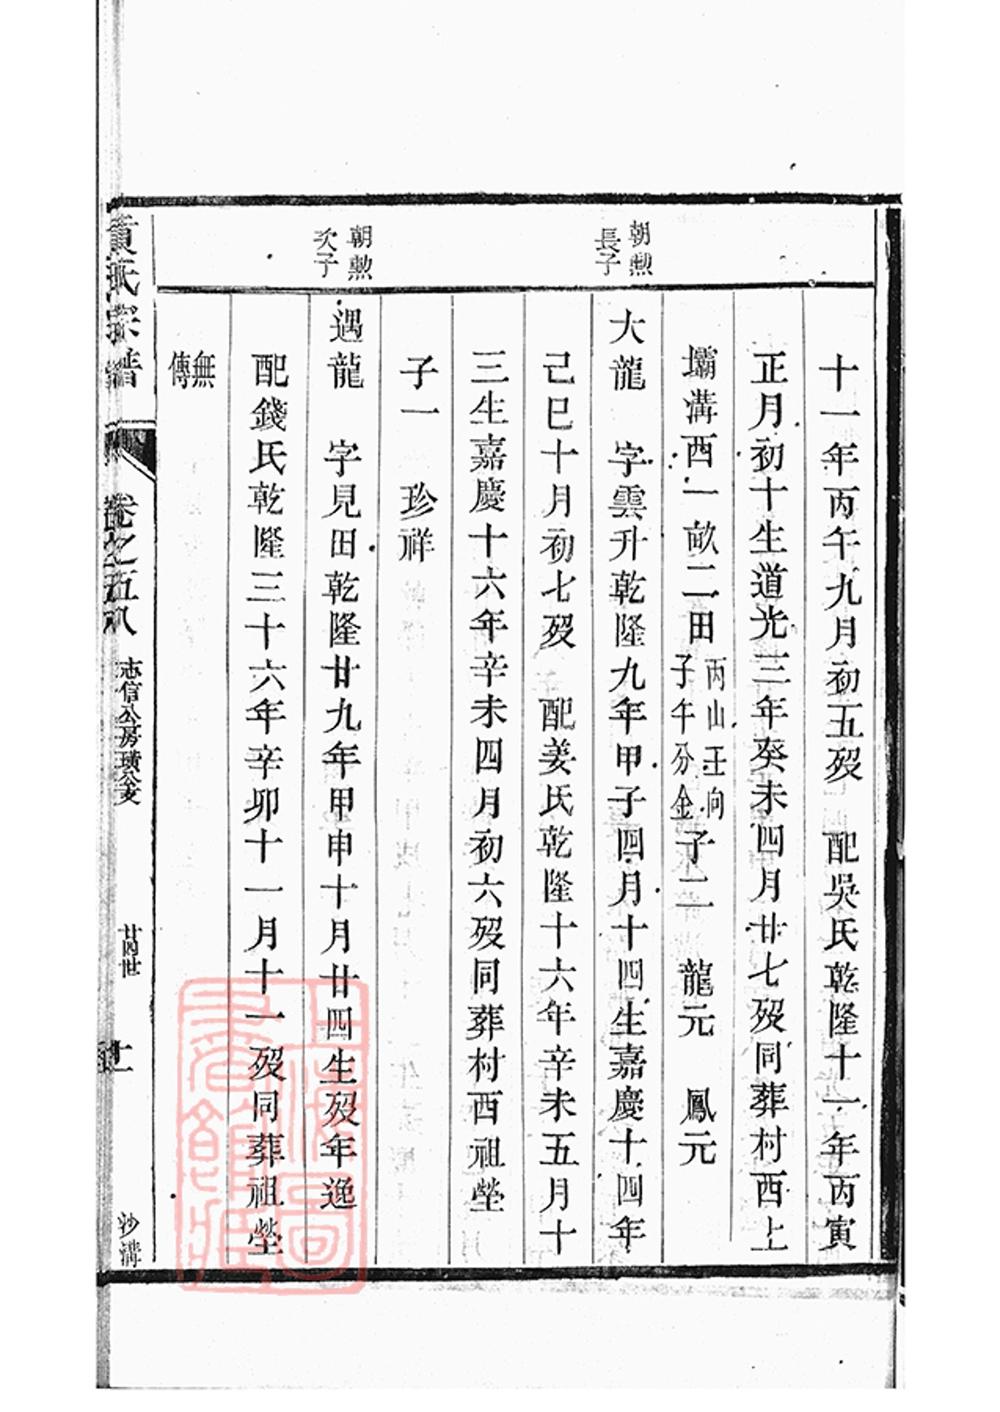 十一年丙午九月初五歿 配吳氏乾隆十一年丙寅
正月初十生道光三年癸未四月廿七歿同葬村西上
壩溝西一畝二田丙山壬向子午分金子二 龍元 鳳元
朝勲長子
大龍 字雲升乾隆九年甲子四月十四生嘉慶十四年
己巳十月初七歿 配姜氏乾隆十六年辛未五月十
三生嘉慶十六年辛未四月初六歿同葬村西祖塋
子一 珍祥
朝勲次子
遇龍 字見田乾隆廿九年甲申十月廿四生歿年逸
配錢氏乾隆三十六年辛卯十一月十一歿同葬祖塋
無傳
黃氏宗譜
卷之五八
志信公房璜公支
廿四世
沙溝
上海圖書館藏